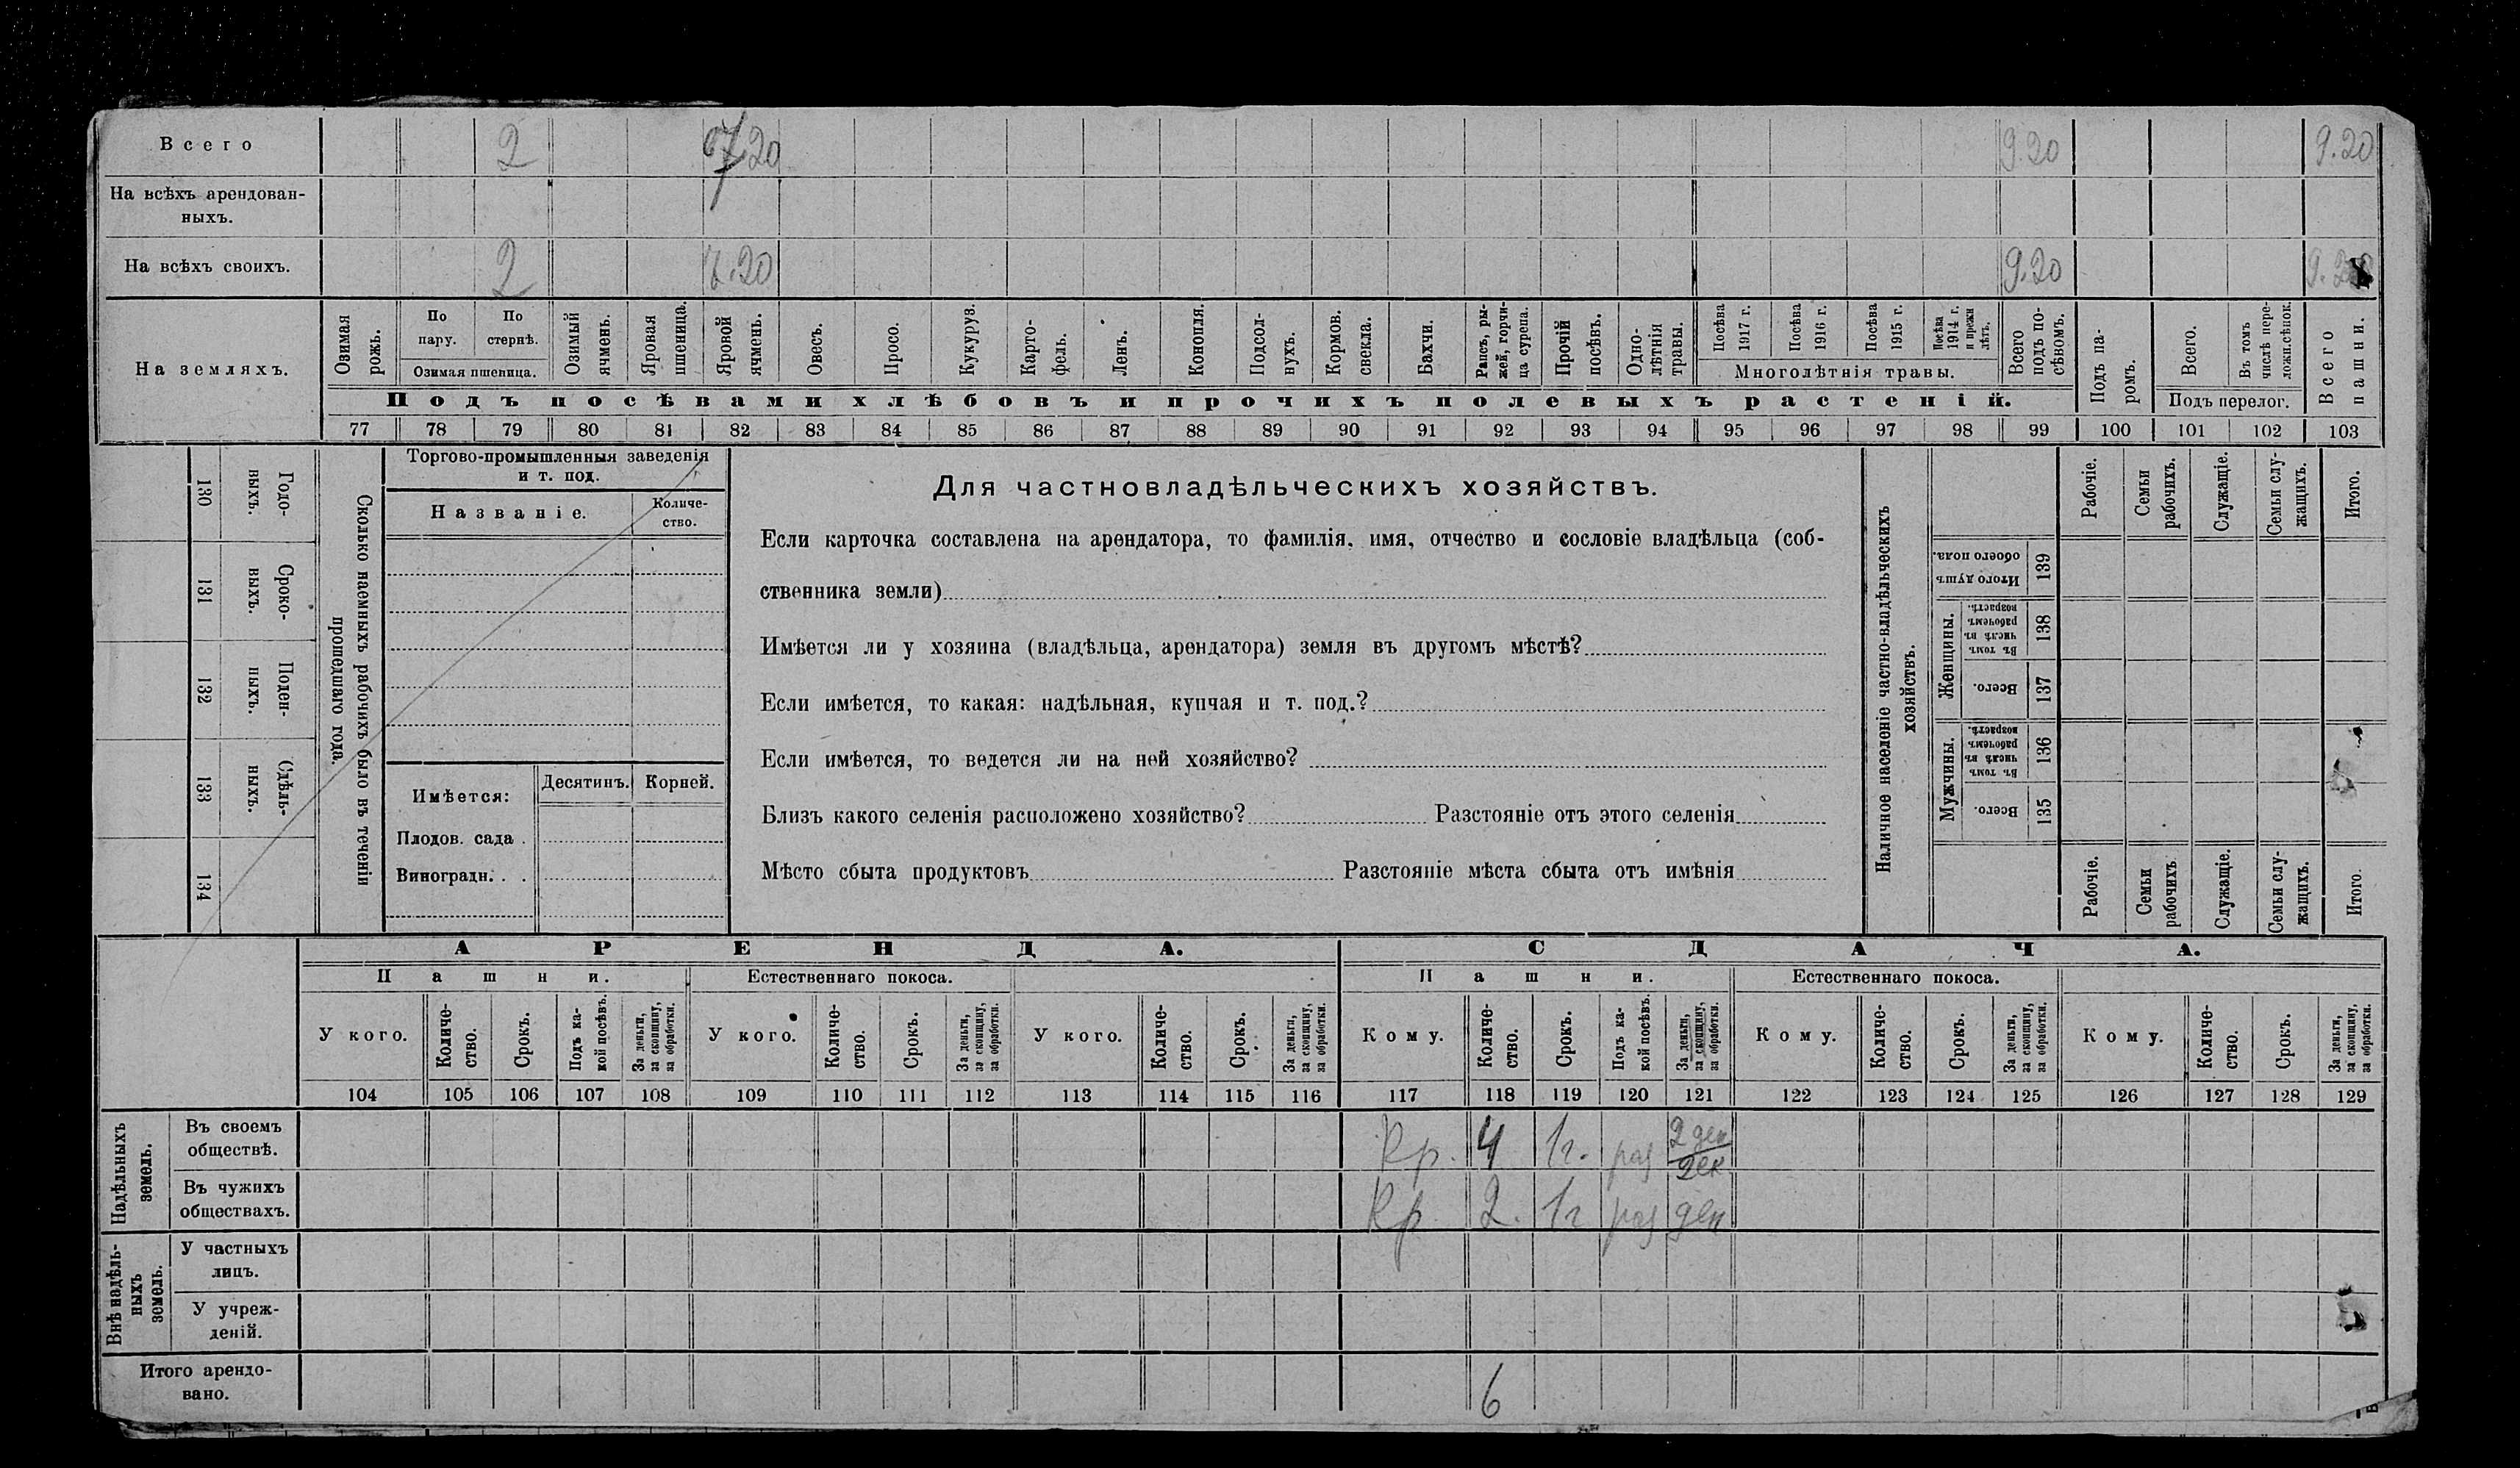 Всего 2 7.20 9.20 9.20
На всѣхъ арендован-
ныхъ.
На всѣхъ своихъ. 2 7.20 9.20
На земляхъ.
Озимая рожь.
По пару.
По стернѣ.
Озимая пшеница.
Озимый ячмень.
Яровая пшеница.
Яровой ячмень.
Овесъ.
Просо.
Кукуруз.
Карто-
фель.
Ленъ.
Конопля.
Подсол-
нухъ.
Кормов. свекла.
Бахчи.
Рапсъ, ры-
жей, горчи-
ца сурепа.
Прочій посѣвъ.
Одно-
лѣтнія травы.
Посѣва 1917 г.
Посѣва 1916 г.
Посѣва 1915 г.
Посѣва 1914 г. и прежн лѣтъ.
Многолѣтнія травы.
Всего подъ по-
сѣвомъ.
Подъ посѣвами хлѣбовъ и прочихъ полевыхъ растеній.
Подъ па-
ромъ.
Всего.
Въ томъ числѣ пере-
ложн.сѣнок.
Подъ перелог.
Всего пашни.
77 78 79 80 81 82 83 84 85 86 87 88 89 90 91 92 93 94 95 96 97 98 99 100 101 102 103
130 Годо-
выхъ.
131 Сроко-
выхъ.
132 Поден-
ныхъ.
133 Сдѣль-
ныхъ.
134
Сколько наемныхъ рабочихъ было въ теченіи
прошедшаго года.
Торгово-промышленныя заведенія
и т. под.
Названіе.
Количе-
ство.
Имѣется: Десятинъ. Корней.
Плодов. сада .
Виноградн. . .
Для частновладѣльческихъ хозяйствъ.
Если карточка составлена на арендатора, то фамилія, имя, отчество и сословіе владѣльца (соб-
ственника земли)
Имѣется ли у хозяина (владѣльца, арендатора) земля въ другомъ мѣстѣ?
Если имѣется, то какая: надѣльная, купчая и т. под.?
Если имѣется, то ведется ли на ней хозяйство?
Близъ какого селенія расположено хозяйство? Разстояніе отъ этого селенія
Мѣсто сбыта продуктовъ Разстояніе мѣста сбыта отъ имѣнія
Наличное населеніе частно-владѣльческихъ
хозяйствъ.
Рабочіе.
Семьи рабочихъ.
Служащіе.
Семьи слу-
жащихъ.
Итого.
Итого душъ обоего пола. 139
Женщины.
Въ томъ числѣ въ рабочемъ возрастѣ. 138
Всего. 137
Мужчины.
Въ томъ числѣ въ рабочемъ возрастѣ. 136
Всего. 135
Рабочіе.
Семьи рабочихъ
Служащіе.
Семьи слу-
жащихъ.
Итого.
АРЕНДА. СДАЧА.
Пашни. Естественнаго покоса. Пашни. Естественнаго покоса.
У кого.
Количе-
ство.
Срокъ.
Подъ ка-
кой посѣвъ.
За деньги, за скопщину, за обработки.
У кого.
Количе-
ство.
Срокъ.
За деньги, за скопщину, за обработки.
У кого.
Количе-
ство.
Срокъ.
За деньги, за скопщину, за обработки.
Кому.
Количе-
ство.
Срокъ.
Подъ ка-
кой посѣвъ.
За деньги, за скопщину, за обработки.
Кому.
Количе-
ство.
Срокъ.
За деньги, за скопщину, за обработки.
Кому.
Количе-
ство.
Срокъ.
За деньги, за скопщину, за обработки.
104 105 106 107 108 109 110 111 112 113 114 115 116 117 118 119 120 121 122 123 124 125 126 127 128 129
Надѣльныхъ земель.
Въ своемъ
обществѣ. Кр. 4 1г. раз 2 ден
2ск.
Въ чужихъ
обществахъ. Кр. 2. 1г раз ден
Внѣ надѣль-
ныхъ земель.
У частныхъ
лицъ.
У учреж-
деній.
Итого арендо-
вано. 6